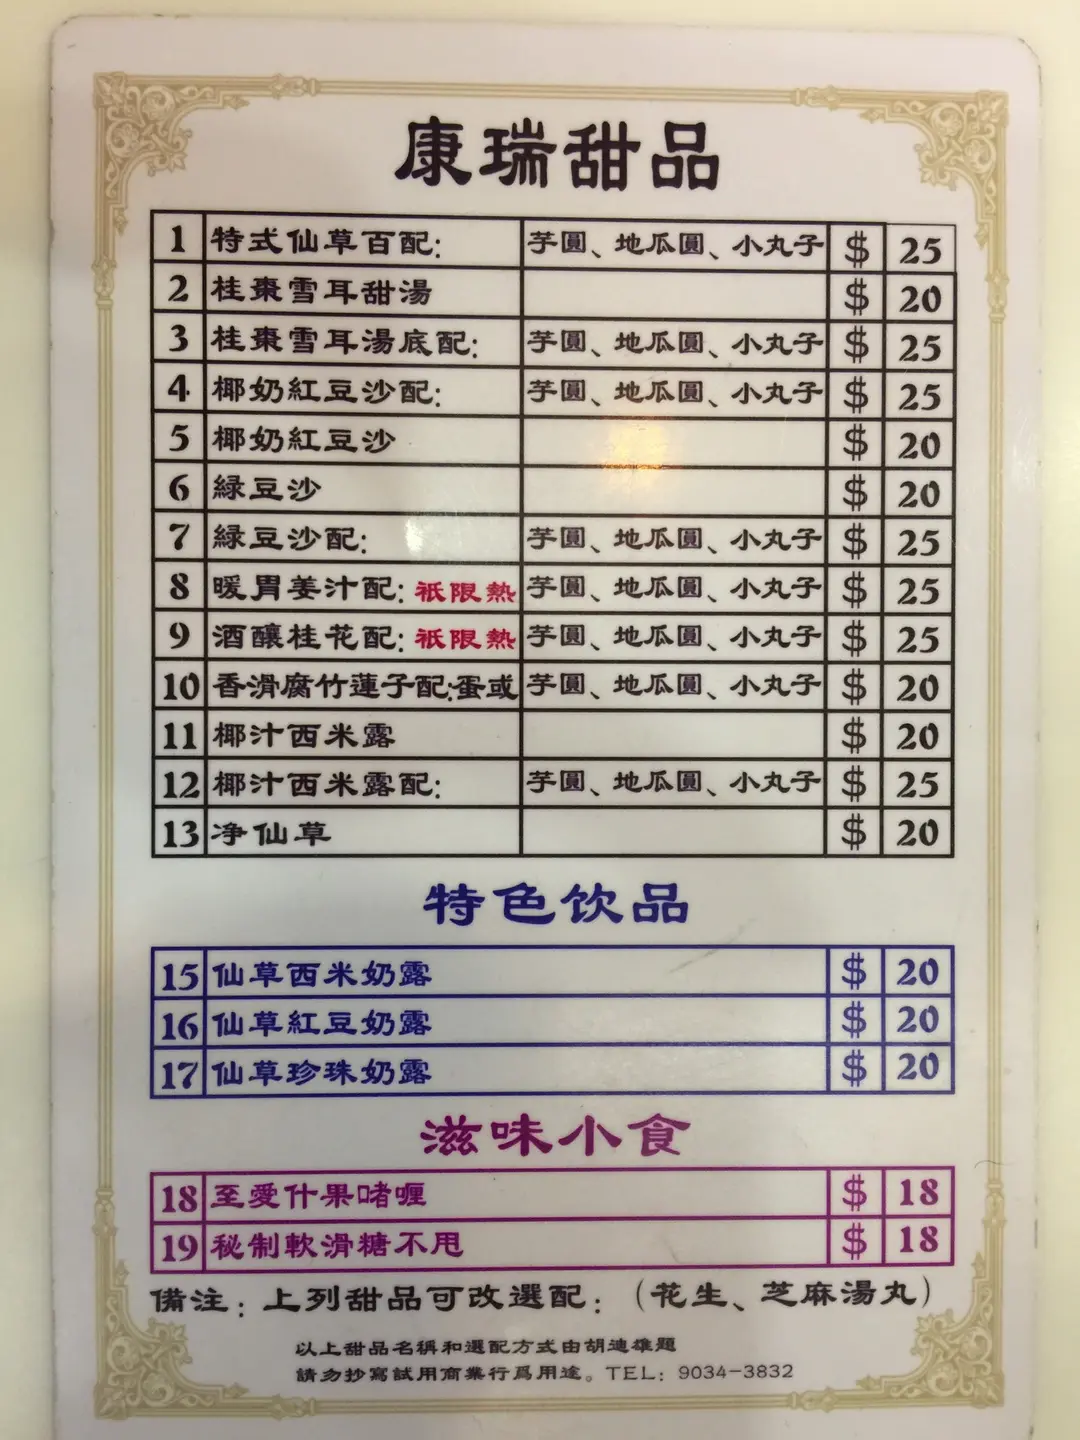 康瑞甜品
1 特式仙草百配: 芋圓、地瓜圓、小丸子 $ 25
2 桂棗雪耳甜湯 $ 20
3 桂棗雪耳湯底配: 芋圓、地瓜圓、小丸子 $ 25
4 椰奶紅豆沙配: 芋圓、地瓜圓、小丸子 $ 25
5 椰奶紅豆沙 $ 20
6 緑豆沙 $ 20
7 緑豆沙配: 芋圓、地瓜圓、小丸子 $ 25
8 暖胃姜汁配: 衹限熱 芋圓、地瓜圓、小丸子 $ 25
9 酒釀桂花配: 衹限熱 芋圓、地瓜圓、小丸子 $ 25
10 香滑腐竹蓮子配:蛋或 芋圓、地瓜圓、小丸子 $ 20
11 椰汁西米露 $ 20
12 椰汁西米露配: 芋圓、地瓜圓、小丸子 $ 25
13 净仙草 $ 20
特色饮品
15 仙草西米奶露 $ 20
16 仙草紅豆奶露 $ 20
17 仙草珍珠奶露 $ 20
滋味小食
18 至愛什果啫喱 $ 18
19 秘制軟滑糖不甩 $ 18
備注: 上列甜品可改選配: (花生、芝麻湯丸)
以上甜品名稱和選配方式由胡迪雄題
請勿抄寫試用商業行爲用途。TEL: 9034-3832